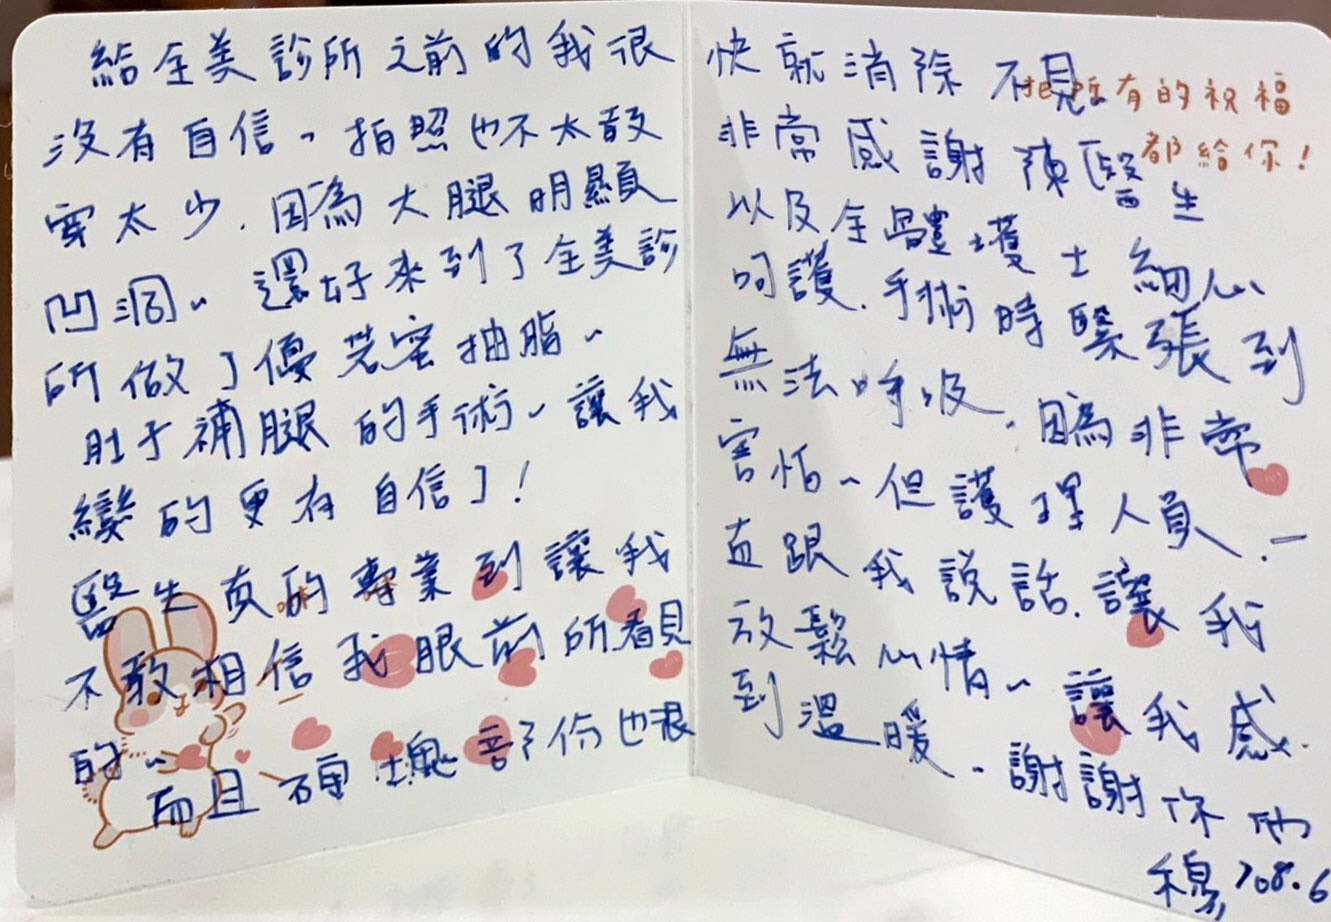 給全美診所之前的我很
沒有自信、拍照也不太敢
穿太少.因為大腿明顯
凹洞、還好來到了全美診
所做了優若蜜抽脂、
肚子補腿的手術、讓我
變的更有自信了!
醫生真的專業到讓我
不敢相信我眼前所看見
的、
而且硬塊部份也很
快就消除不見、
把所有的祝福
都給你!
非常感謝陳醫生
以及全體護士細心
呵護.手術時緊張到
無法呼吸.因為非常
害怕、但護理人員.一
直跟我說話.讓我
放鬆心情、讓我感
到溫暖、謝謝你們
穆 708.6